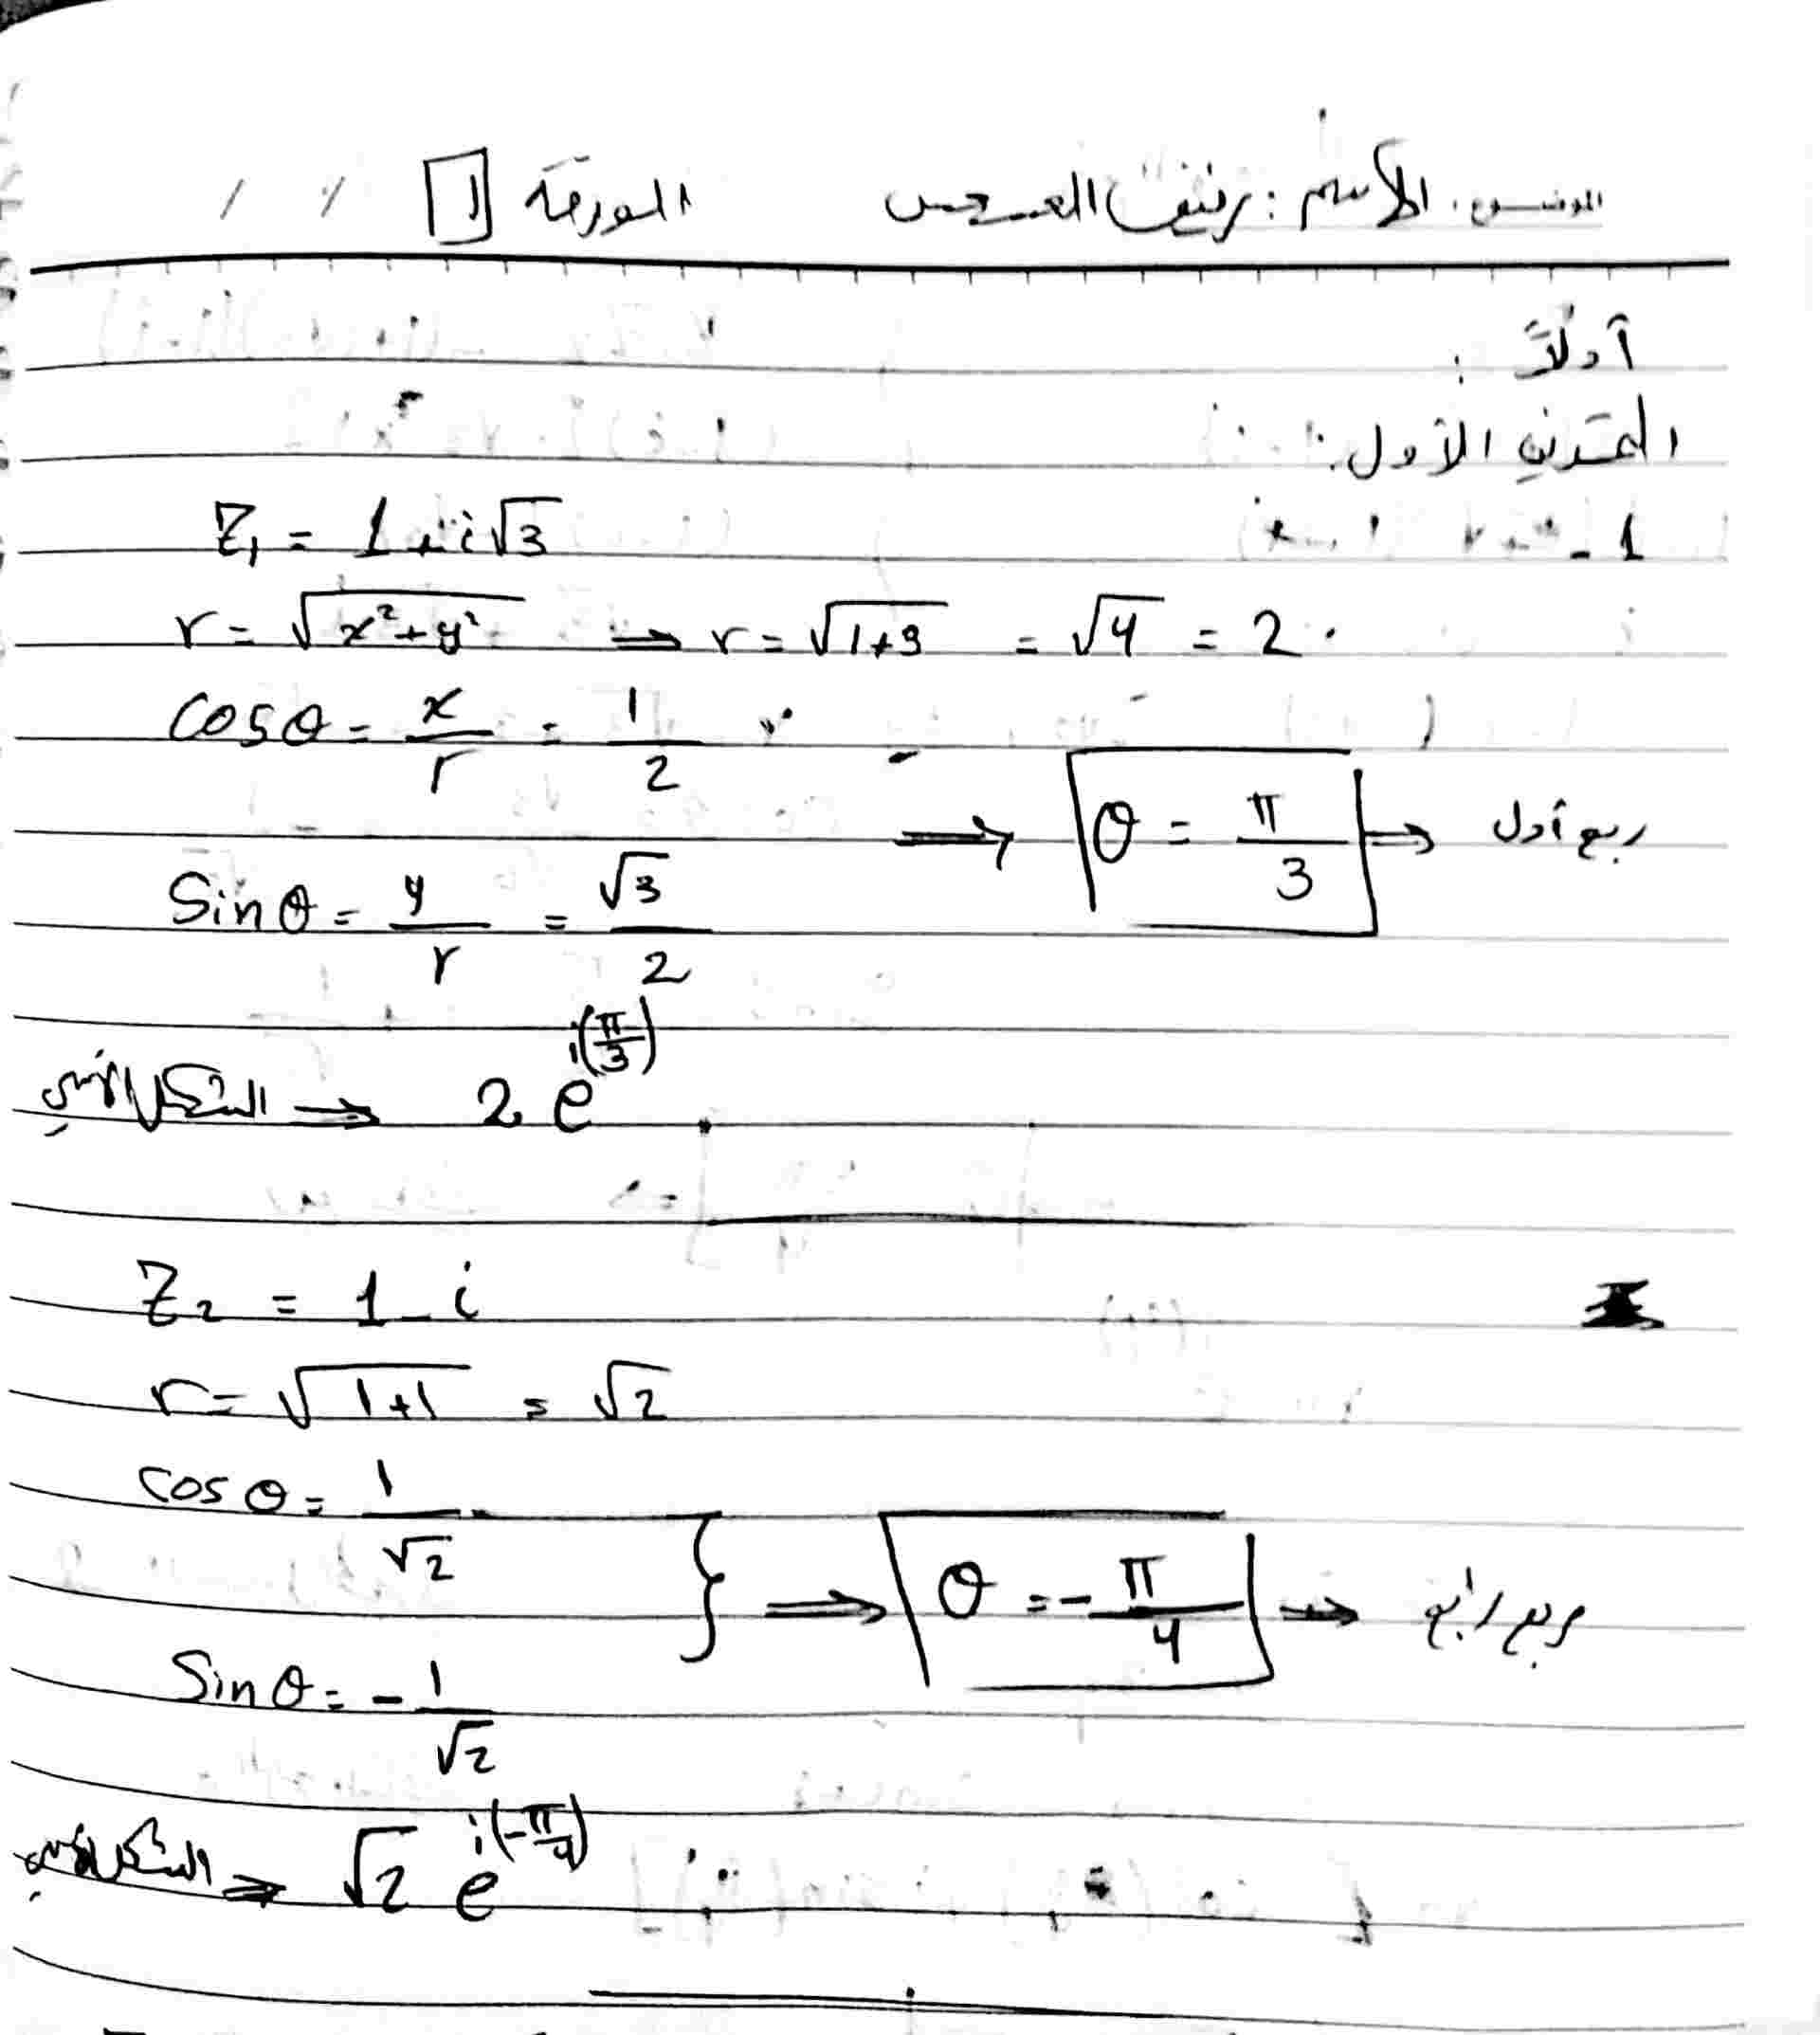 الموضوع: الاسم: رنيف العـجـس الورقة 1 / /
أولاً:
التمرين الأول:
1 - Z₁ = 1 + i√3
r = √(x²+y²) ⇒ r = √(1+3) = √4 = 2
cosθ = x/r = 1/2
⇒ θ = π/3 ⇒ ربع أول
Sinθ = y/r = √3/2
الشكل الأسي ⇒ 2 e^{i(π/3)}
Z₂ = 1 - i
r = √(1+1) = √2
cosθ = 1/√2
} ⇒ θ = -π/4 ⇒ ربع رابع
Sinθ = -1/√2
الشكل الأسي ⇒ √2 e^{i(-π/4)}